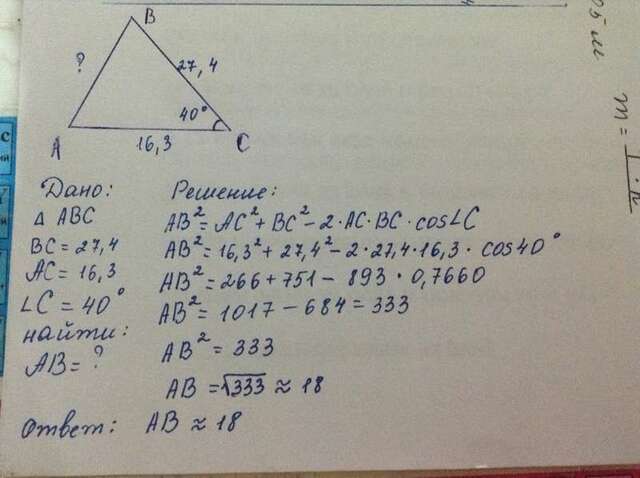 B
?
27,4
40°
A
16,3
C
Дано:
Δ ABC
BC = 27,4
AC = 16,3
∠C = 40°
найти:
AB = ?
Решение:
AB² = AC² + BC² - 2·AC·BC·cos∠C
AB² = 16,3² + 27,4² - 2·27,4·16,3·cos40°
AB² = 266 + 751 - 893·0,7660
AB² = 1017 - 684 = 333
AB² = 333
AB = √333 ≈ 18
Ответ: AB ≈ 18
m =